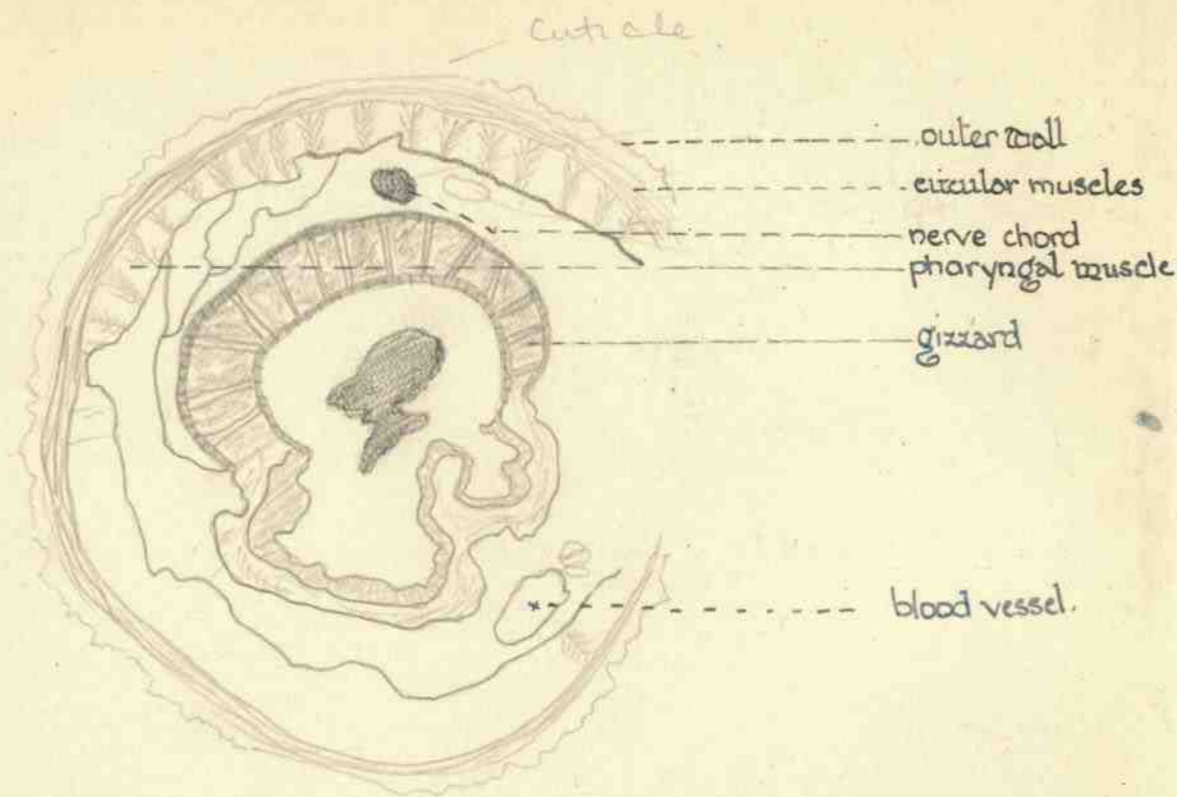 Cuticle
outer wall
circular muscles
nerve chord
pharyngal muscle
gizzard
blood vessel.